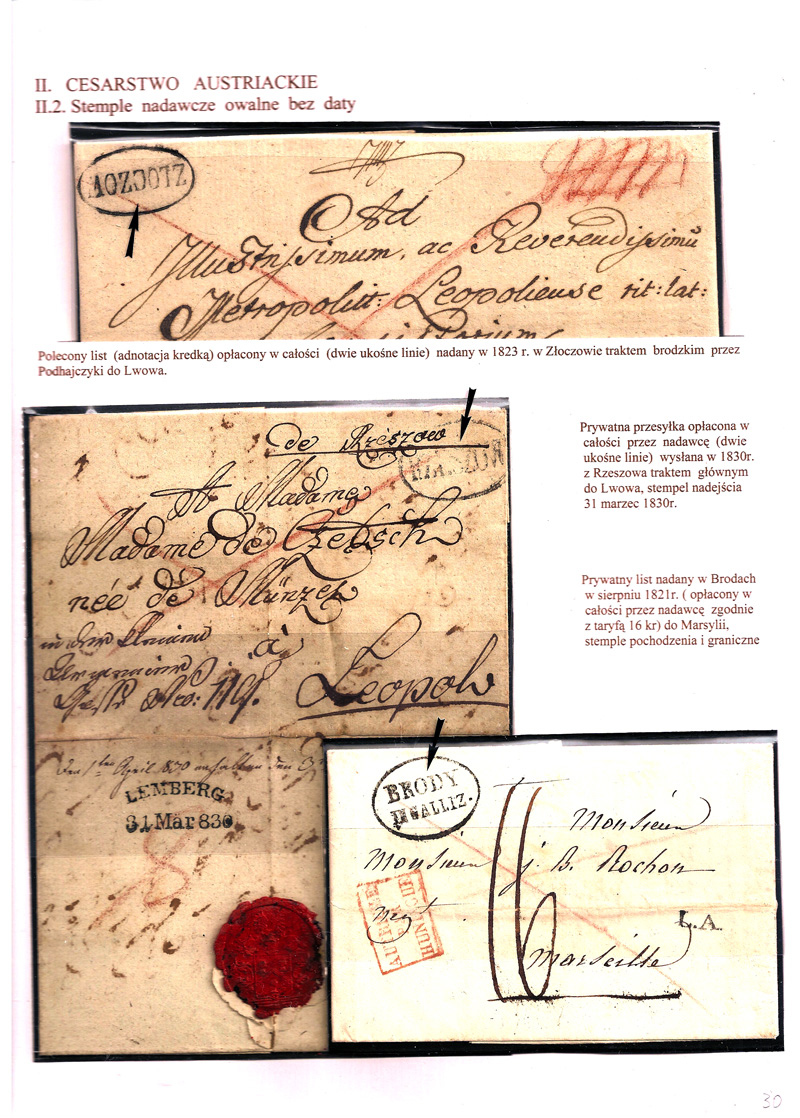 II. CESARSTWO AUSTRIACKIE
II.2. Stemple nadawcze owalne bez daty
ZŁOCZOW
Ad
Illustrissimum, ac Reverendissimū
Metropolitt: Leopoliense rit: lat:
Polecony list (adnotacja kredką) opłacony w całości (dwie ukośne linie) nadany w 1823 r. w Złoczowie traktem brodzkim przez
Podhajczyki do Lwowa.
de Rzeszow
A Madame
Madame de Czetsch
née de Münzer
a
No: 119.
Leopol
Prywatna przesyłka opłacona w
całości przez nadawcę (dwie
ukośne linie) wysłana w 1830r.
z Rzeszowa traktem głównym
do Lwowa, stempel nadejścia
31 marzec 1830r.
Prywatny list nadany w Brodach
w sierpniu 1821r. ( opłacony w
całości przez nadawcę zgodnie
z taryfą 16 kr) do Marsylii,
stemple pochodzenia i graniczne
April 830
LEMBERG
31 Mär 830
BRODY
IN GALLIZ.
Monsieur
Monsieur J. B. Rochon
negt.
AUTRICHE
PAR
HUNINGUE
L.A.
16
Marseille
30